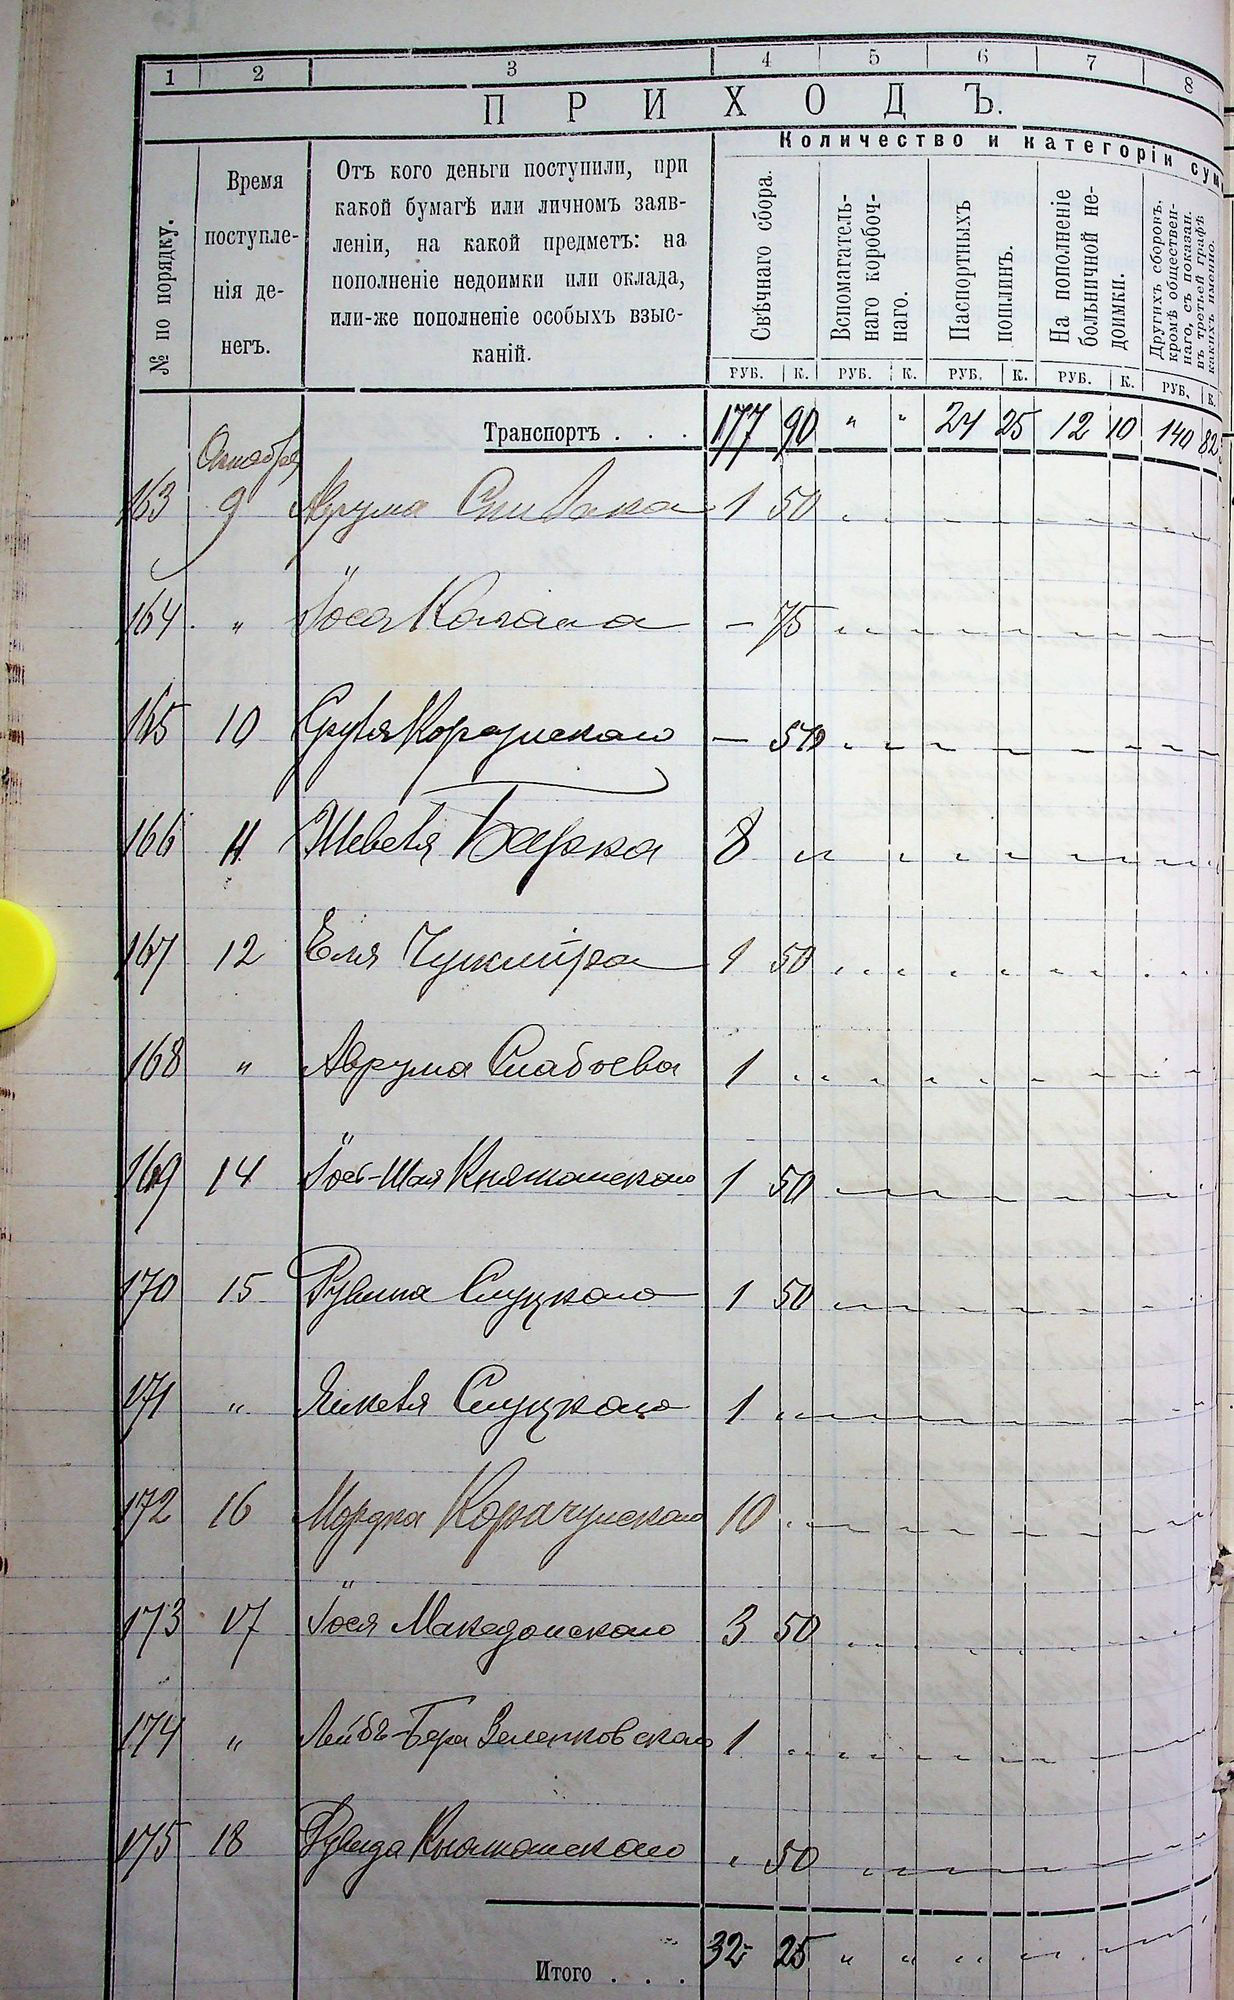 1 2 3 4 5 6 7 8
ПРИХОДЪ.
Количество и категоріи сум
№ по порядку.
Время
поступле-
нія де-
негъ.
Отъ кого деньги поступили, при
какой бумагѣ или личномъ заяв-
леніи, на какой предметъ: на
пополненіе недоимки или оклада,
или-же пополненіе особыхъ взыс-
каній.
Свѣчнаго сбора.
Вспомагатель-
наго коробоч-
наго.
Паспортныхъ
пошлинъ.
На пополненіе
больничной не-
доимки.
Другихъ сборовъ,
кромѣ обществен-
наго, съ показан.
въ третьей графѣ
какихъ именно.
РУБ. К. РУБ. К. РУБ. К. РУБ. К. РУБ. К.
Транспортъ . . . 177 90 " " 24 25 12 10 140 82
Октября
163 9 Аврума Спивака 1 50
164 " Іося Кагана – 75
165 10 – 50
166 11 Шевеля 8
167 12 Еля 1 50
168 " Аврума Слабоева 1
169 14 Іось-Шая Княжанскаго 1 50
170 15 Рувина Слуцкаго 1 50
171 " Янкеля Слуцкаго 1
172 16 Мордка Корачунскаго 10
173 17 Іося Македонскаго 3 50
174 " Лейбъ-Бера 1
175 18 Княжанскаго " 50
Итого . . . 32 25 " " " "